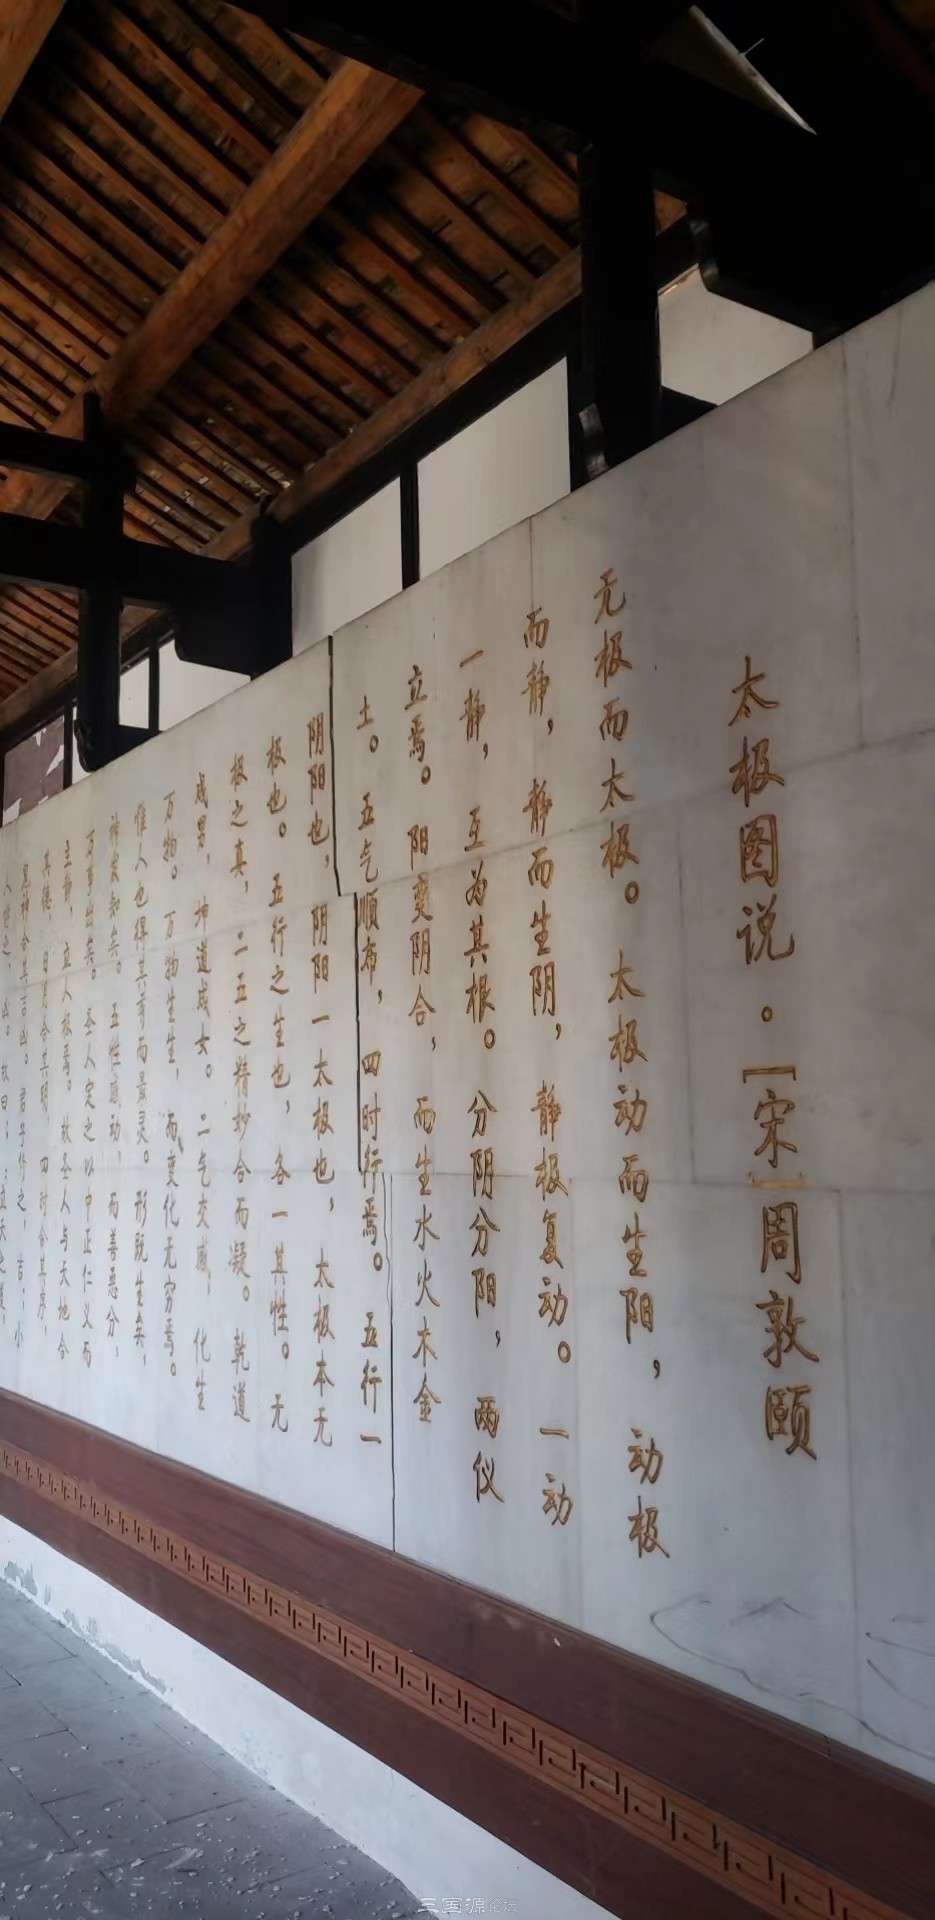 太极图说·[宋]周敦颐
无极而太极。太极动而生阳，动极
而静，静而生阴，静极复动。一动
一静，互为其根。分阴分阳，两仪
立焉。阳变阴合，而生水火木金
土。五气顺布，四时行焉。五行一
阴阳也，阴阳一太极也，太极本无
极也。五行之生也，各一其性。无
极之真，二五之精妙合而凝。乾道
成男，坤道成女。二气交感，化生
万物。万物生生，而变化无穷焉。
惟人也得其秀而最灵。形既生矣，
神发知矣。五性感动，而善恶分，
万事出矣。圣人定之以中正仁义而
主静，立人极焉。故圣人与天地合
其德，日月合其明，四时合其序，
鬼神合其吉凶。君子修之，吉；小
人悖之，凶。故曰：立天之道，
三国源论坛